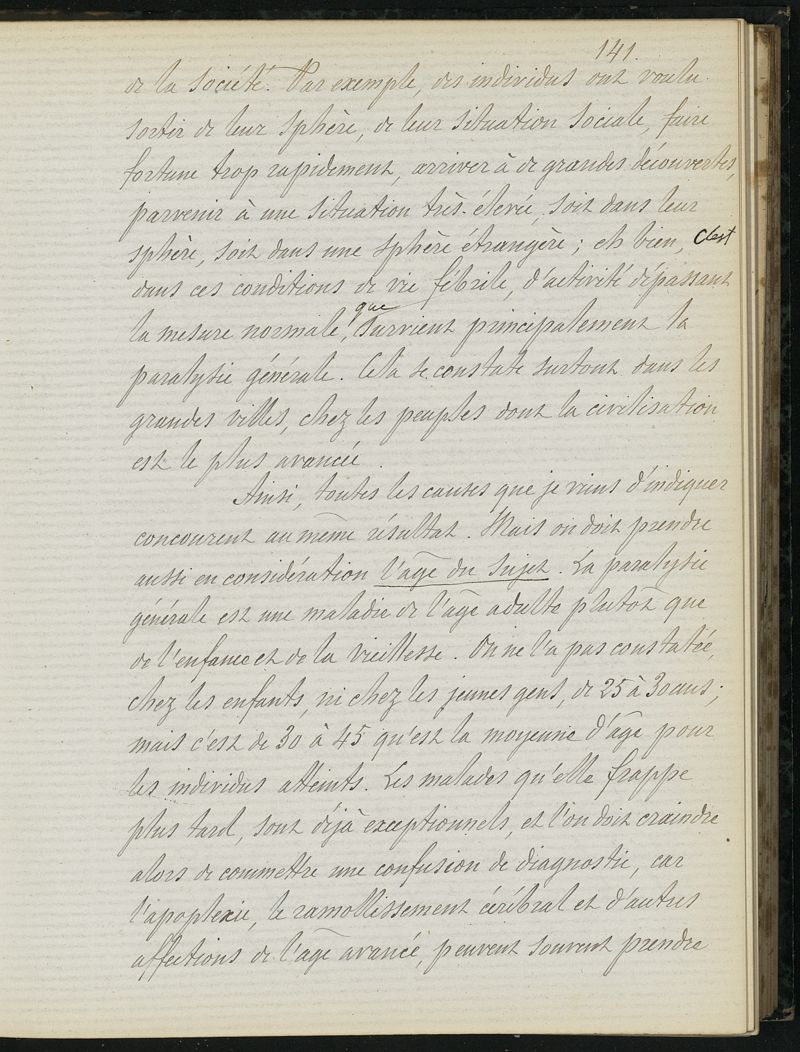 141.
de la Société. Par exemple, des individus ont voulu
sortir de leur sphère, de leur situation sociale, faire
fortune trop rapidement, arriver à de grandes découvertes,
parvenir à une situation très-élevée, soit dans leur
sphère, soit dans une sphère étrangère ; eh bien, c'est
dans ces conditions de vie fébrile, d'activité dépassant
la mesure normale, que survient principalement la
paralysie générale. Cela se constate surtout dans les
grandes villes, chez les peuples dont la civilisation
est le plus avancée.
Ainsi, toutes les causes que je viens d'indiquer
concourent au même résultat. Mais on doit prendre
aussi en considération l'âge du sujet. La paralysie
générale est une maladie de l'âge adulte plutôt que
de l'enfance et de la vieillesse. On ne l'a pas constatée,
chez les enfants, ni chez les jeunes gens, de 25 à 30 ans ;
mais c'est de 30 à 45 qu'est la moyenne d'âge pour
les individus atteints. Les malades qu'elle frappe
plus tard, sont déjà exceptionnels, et l'on doit craindre
alors de commettre une confusion de diagnostic, car
l'apoplexie, le ramollissement cérébral et d'autres
affections de l'âge avancé, peuvent souvent prendre